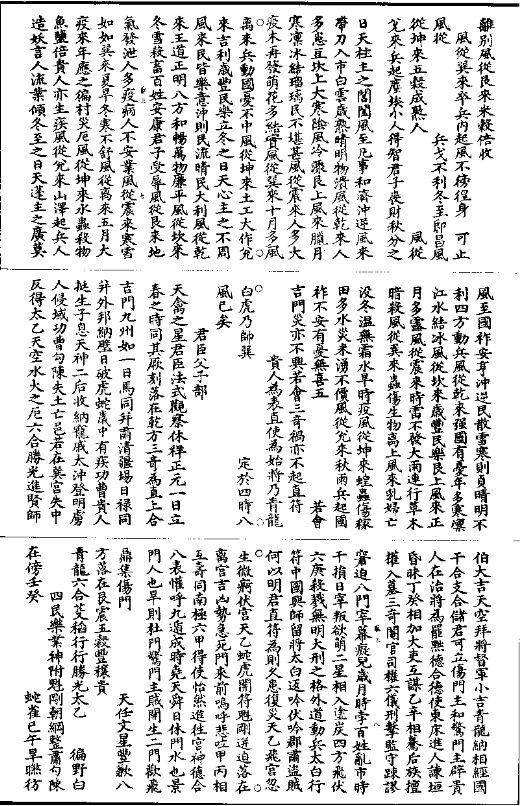 離別風從艮來米穀倍收
風從巽來卒兵内起風不傍徑身　可止
風從　兵戈不利冬至即昌風
從坤來五穀成熟人　風從
兌來兵起塵埃小人得智君子喪財秋分之
日天柱主之閶闔風至凡事和齊沖逆風來
帶刀入市白雲歲熟晴明物潰風從乾來人
多患豆坎上大寒陰風冷憑艮上風來臘月
寒凜冰結瑞瑞民不堪甚風從震來人多大
疫木再發萌花多結實風從巽來十月多風
離來兵動國憂不中風從坤來土工大作兌
來吉利歲豐民樂立冬之日天心主之不周
風來民皆樂意沖則民流晴民大利風從乾
來王道正明八方和暢萬物廉平風從坎來
冬雪殺畜百姓安康君子受辱風從艮來地
氣發泄人多疫病人不安業風從震來寒雪
如如巽來夏旱冬寒不舒風從离來五月大
疫來年應之徧村災厄風從坤來水蟲殺物
魚鹽倍貴人亦生疾風從兌來山澤起兵人
造妖言人流業傾冬至之日天逢主之廣莫
風至國祚安亨沖逆民散雪寒則貞晴明不
利四方動兵風從乾來強國有憂年多寒凜
江水結冰風從坎來歲豐民樂艮上風來正
月多霪風從震來時雷不發大雨連行草木
暗殺風從巽來蟲傷生物离上風來乳婦亡
没冬溫無霜水旱時疫風從坤來蝗蟲傷稼
田多水災來湧不償風從兌來秋雨兵起國
祚不安有憂無喜五　若會
吉門災亦不興若會三奇禍亦不起直符
貴人為表直使為始將乃青龍
白虎乃師巽　定於四時八
風已矣
君臣父子部
天禽之星君臣法式觀察休祥正元一日立
春之時同其厥刻落在乾方三奇為直上合
吉門九州如一日馬同并雨清溫場日祿同
并外邦納壁日破虎蛇歲中有疾功曹貴人
挺生子息天神二后收納寵戚太沖登明虜
人侵域功曹勾陳失土亡邑若在巽宮失中
反得太乙天空水火之厄六合勝光進賢師
伯大吉天空拜將督軍小吉青龍納相經國
干合支合儲君可立傷門主和驚門主辟責
人在治將為罷黜德合德使東床進人諫垣
昏昧丁癸相加大吏互謀乙辛相騫后族擅
權入墓三奇閹官司權六儀刑擊監守踈謬
窘迫八門宰幕癡兒歲月時孛百姓亂市時
干損日宰叛欲萌二星相入塗炭四方飛伏
六庚殺戮無明大刑之格外道動兵太白行
符中國興師留將太白返吟伏吟郡盜賊
何以明君直符為則久患復災天乙飛宮忽
生微痾伏宮天乙蛇虎開符魁剛迸迫落在
离宮吉凶勢急死門來前嗚呼悲哉甲丙相
互壽同南極六甲得使怡然進往宮神德合
八表惟呼九遁成時堯天舜日休門水也景
門人也早則杜門驚門主戲開生二門歡飛
鼎集傷門　天任文星豐歉八
方落在艮震五穀豐穰貴
青龍六合艾稻行行勝光太乙　徧野白
四民樂業神附魁剛朝綱整肅勾陳
在傍壬癸　蛇雀巳午旱暵彷